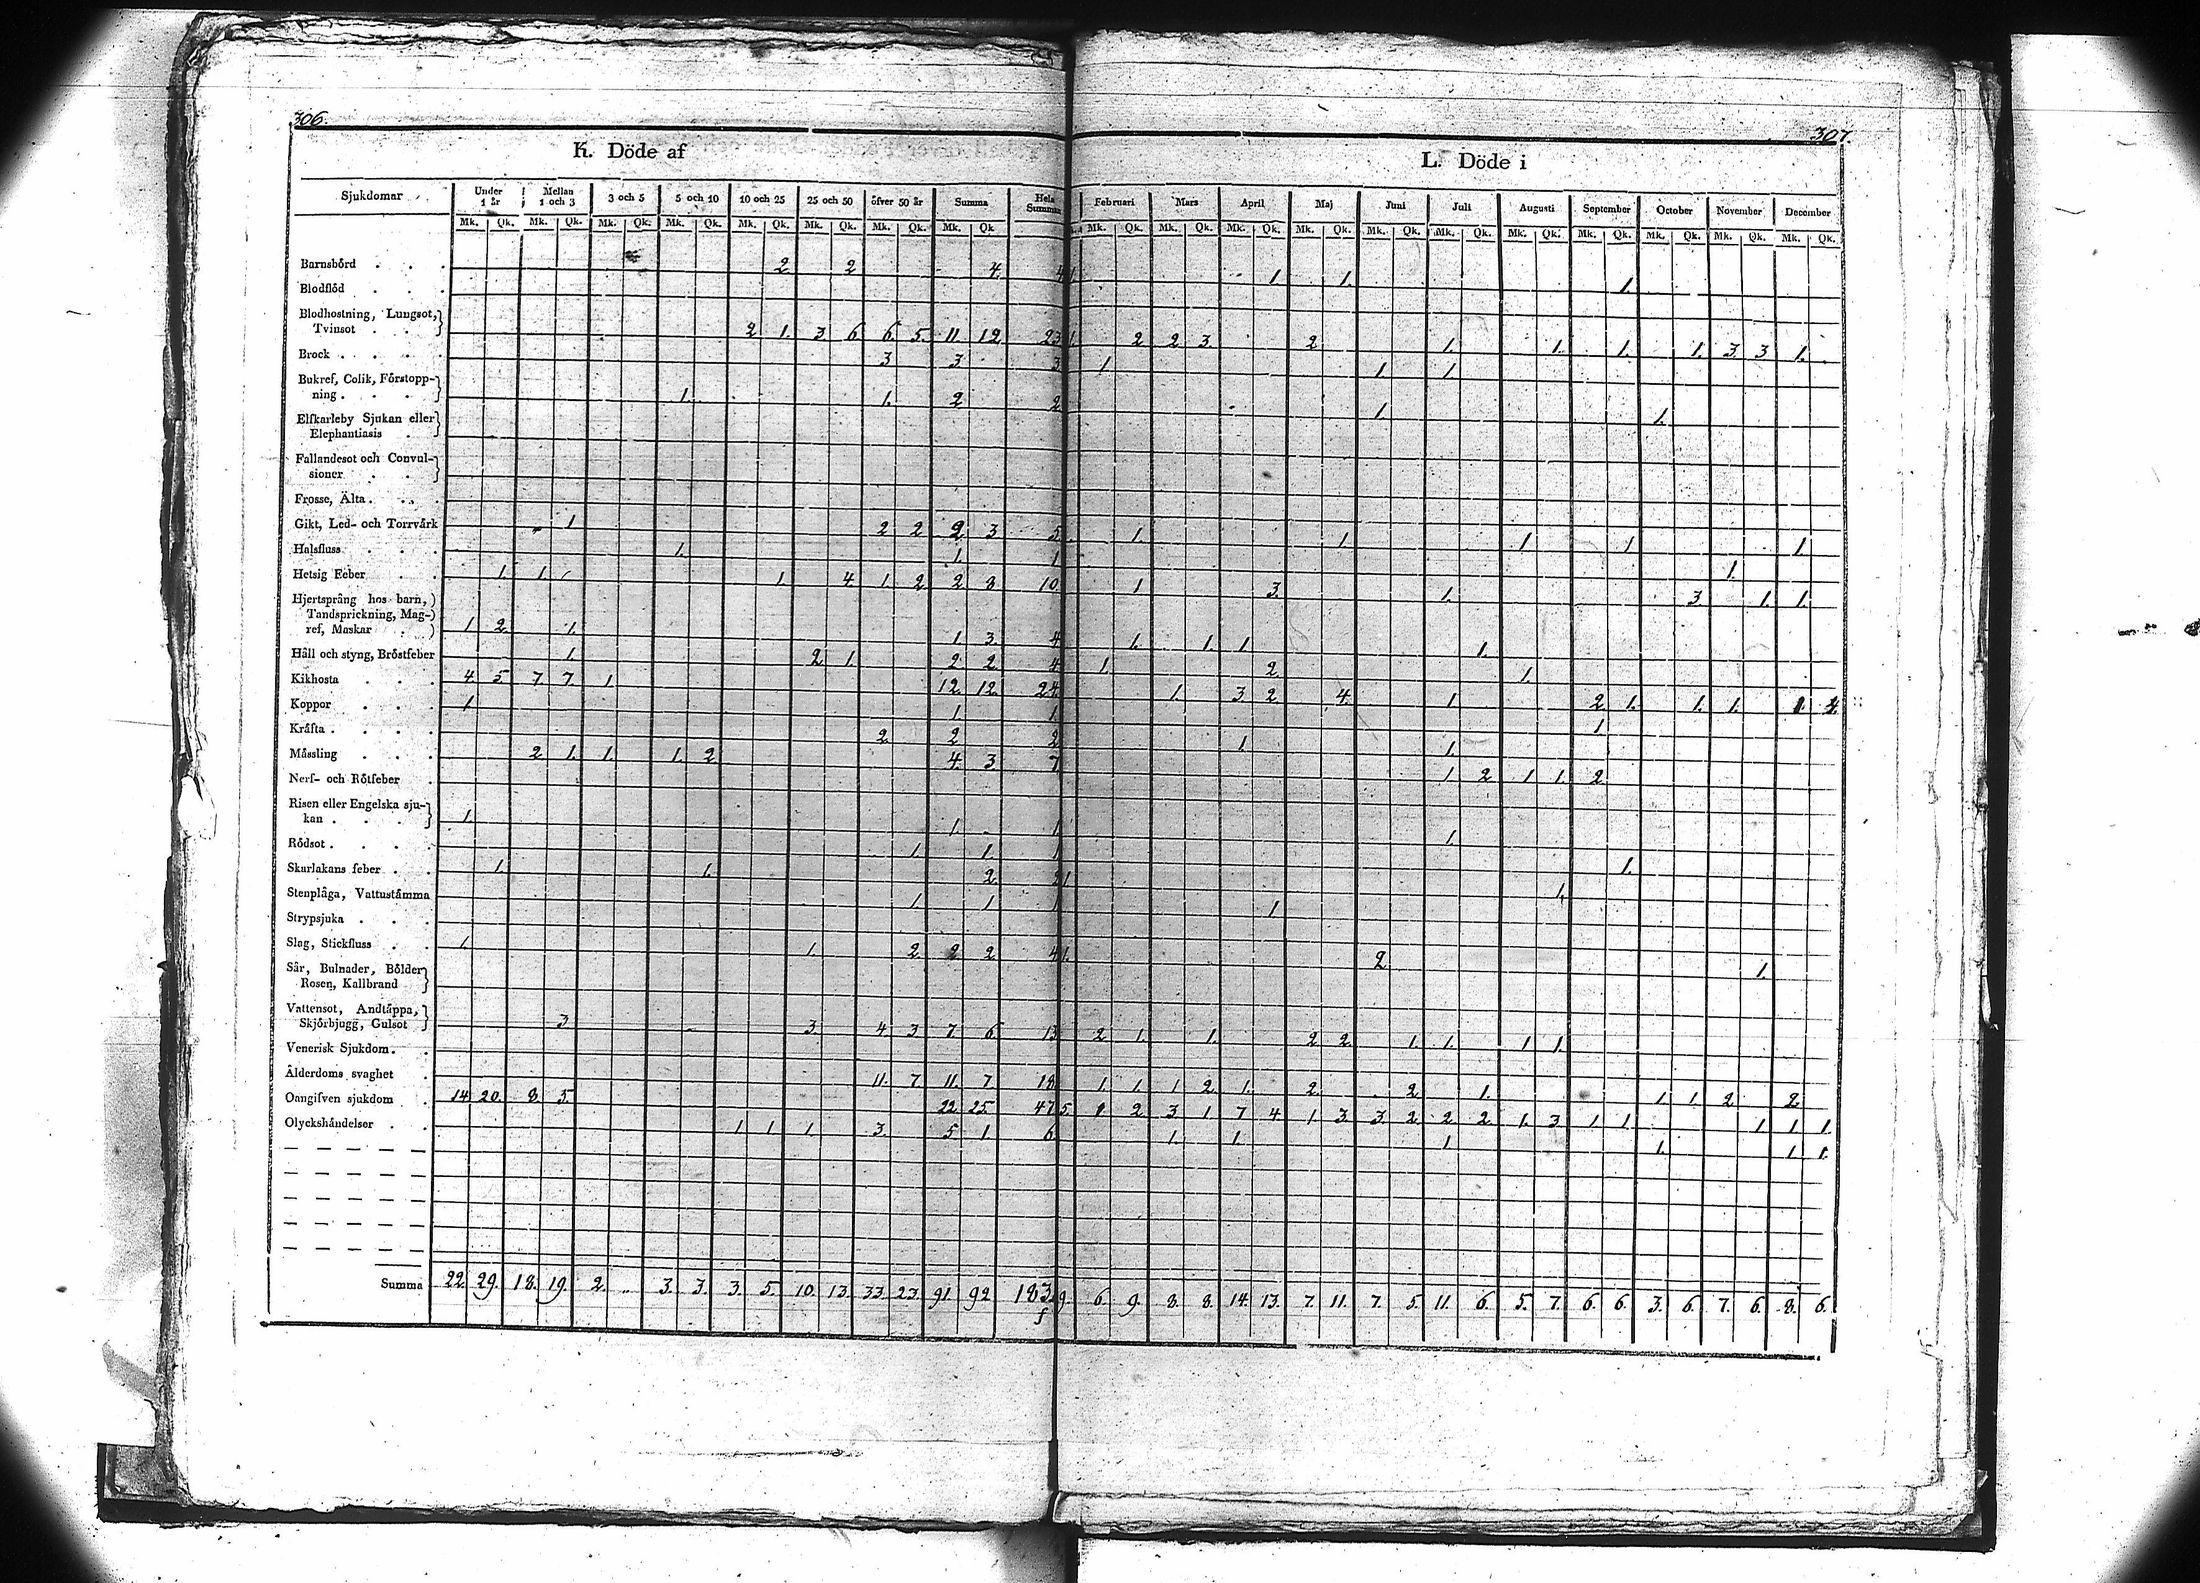 306.
307.
K. Döde af
L. Döde i
Sjukdomar Under 1 år Mellan 1 och 3 3 och 5 5 och 10 10 och 25 25 och 50 öfver 50 år Summa Hela Summan Februari Mars April Maj Juni Juli Augusti September October November December
Mk. Qk. Mk. Qk. Mk. Qk. Mk. Qk. Mk. Qk. Mk. Qk. Mk. Qk. Mk. Qk Mk. Qk. Mk. Qk. Mk. Qk. Mk. Qk. Mk. Qk. Mk. Qk. Mk. Qk. Mk. Qk. Mk. Qk. Mk. Qk. Mk. Qk.
Barnsbörd . . . 2 2 4. 4 1. 1. 1. 1.
Blodflöd . . .
Blodhostning, Lungsot,
Tvinsot . . . 2 1. 3 6 6. 5. 11. 12. 23 1. 2 2 3. 2 1. 1. 1. 1. 3. 3 1.
Brock . . . . 3 3 3 1 1. 1.
Bukref, Colik, Förstopp-
ning . . . . 1. 1. 2 2 1. 1.
Elfkarleby Sjukan eller
Elephantiasis .
Fallandesot och Convul-
sioner . . .
Frosse, Älta . . .
Gikt, Led- och Torrvärk 1 2 2 2 3 5 1. 1 1 1 1
Halsfluss . . . 1. 1. 1 1.
Hetsig Feber . . 1. 1. 1. 4 1. 2 2 8 10 1 3. 1. 3. 1. 1.
Hjertsprång hos barn,
Tandsprickning, Mag-
ref, Maskar . 1 2 1. 1 3. 4 1. 1. 1. 1.
Håll och styng, Bröstfeber 1. 2 1. 2 2 4 1. 2 1.
Kikhosta . . . 4. 5. 7. 7. 1 12. 12. 24. 1. 3. 2. 4. 1 2 1. 1. 1. 1. 2.
Koppor . . . 1 1. 1. 1
Kräfta . . . . 2 2 2 1 1.
Mässling . . . 2 1. 1. 1. 2 4. 3 7 1 2 1 1. 2
Nerf- och Rötfeber .
Risen eller Engelska sju-
kan . . . . 1. 1. 1 1.
Rödsot . . . . 1. 1. 1 1.
Skarlakans feber . . 1. 1. 2. 2 1. 1.
Stenplåga, Vattustämma 1. 1 1 1
Strypsjuka . . .
Slag, Stickfluss . . 1. 1. 2 2 2 4 1. 2 1.
Sår, Bulnader, Bölder
Rosen, Kallbrand
Vattensot, Andtäppa,
Skjörbjugg, Gulsot 3 3. 4 3. 7. 6 13 2 1. 1. 2 2. 1. 1. 1 1.
Venerisk Sjukdom . .
Ålderdoms svaghet . 11. 7 11. 7 18 1. 1. 1 2. 1. 2. 2 1. 1. 1. 2 2
Oangifven sjukdom . 14. 20. 8. 5. 22 25. 47 5. 1 2 3 1 7 4 1. 3 3. 2 2 2 1. 3 1 1. 1 1. 1.
Olyckshändelser . . 1. 1. 1. 3. 5. 1. 6. 1. 1. 1 1. 1. 1.
Summa 22. 29. 18. 19. 2. .. 3. 3. 3. 5. 10. 13. 33. 23. 91. 92 183. 9. 6. 9. 8. 8. 14. 13. 7. 11. 7. 5. 11. 6. 5. 7. 6. 6. 3. 6. 7. 6. 8. 6.